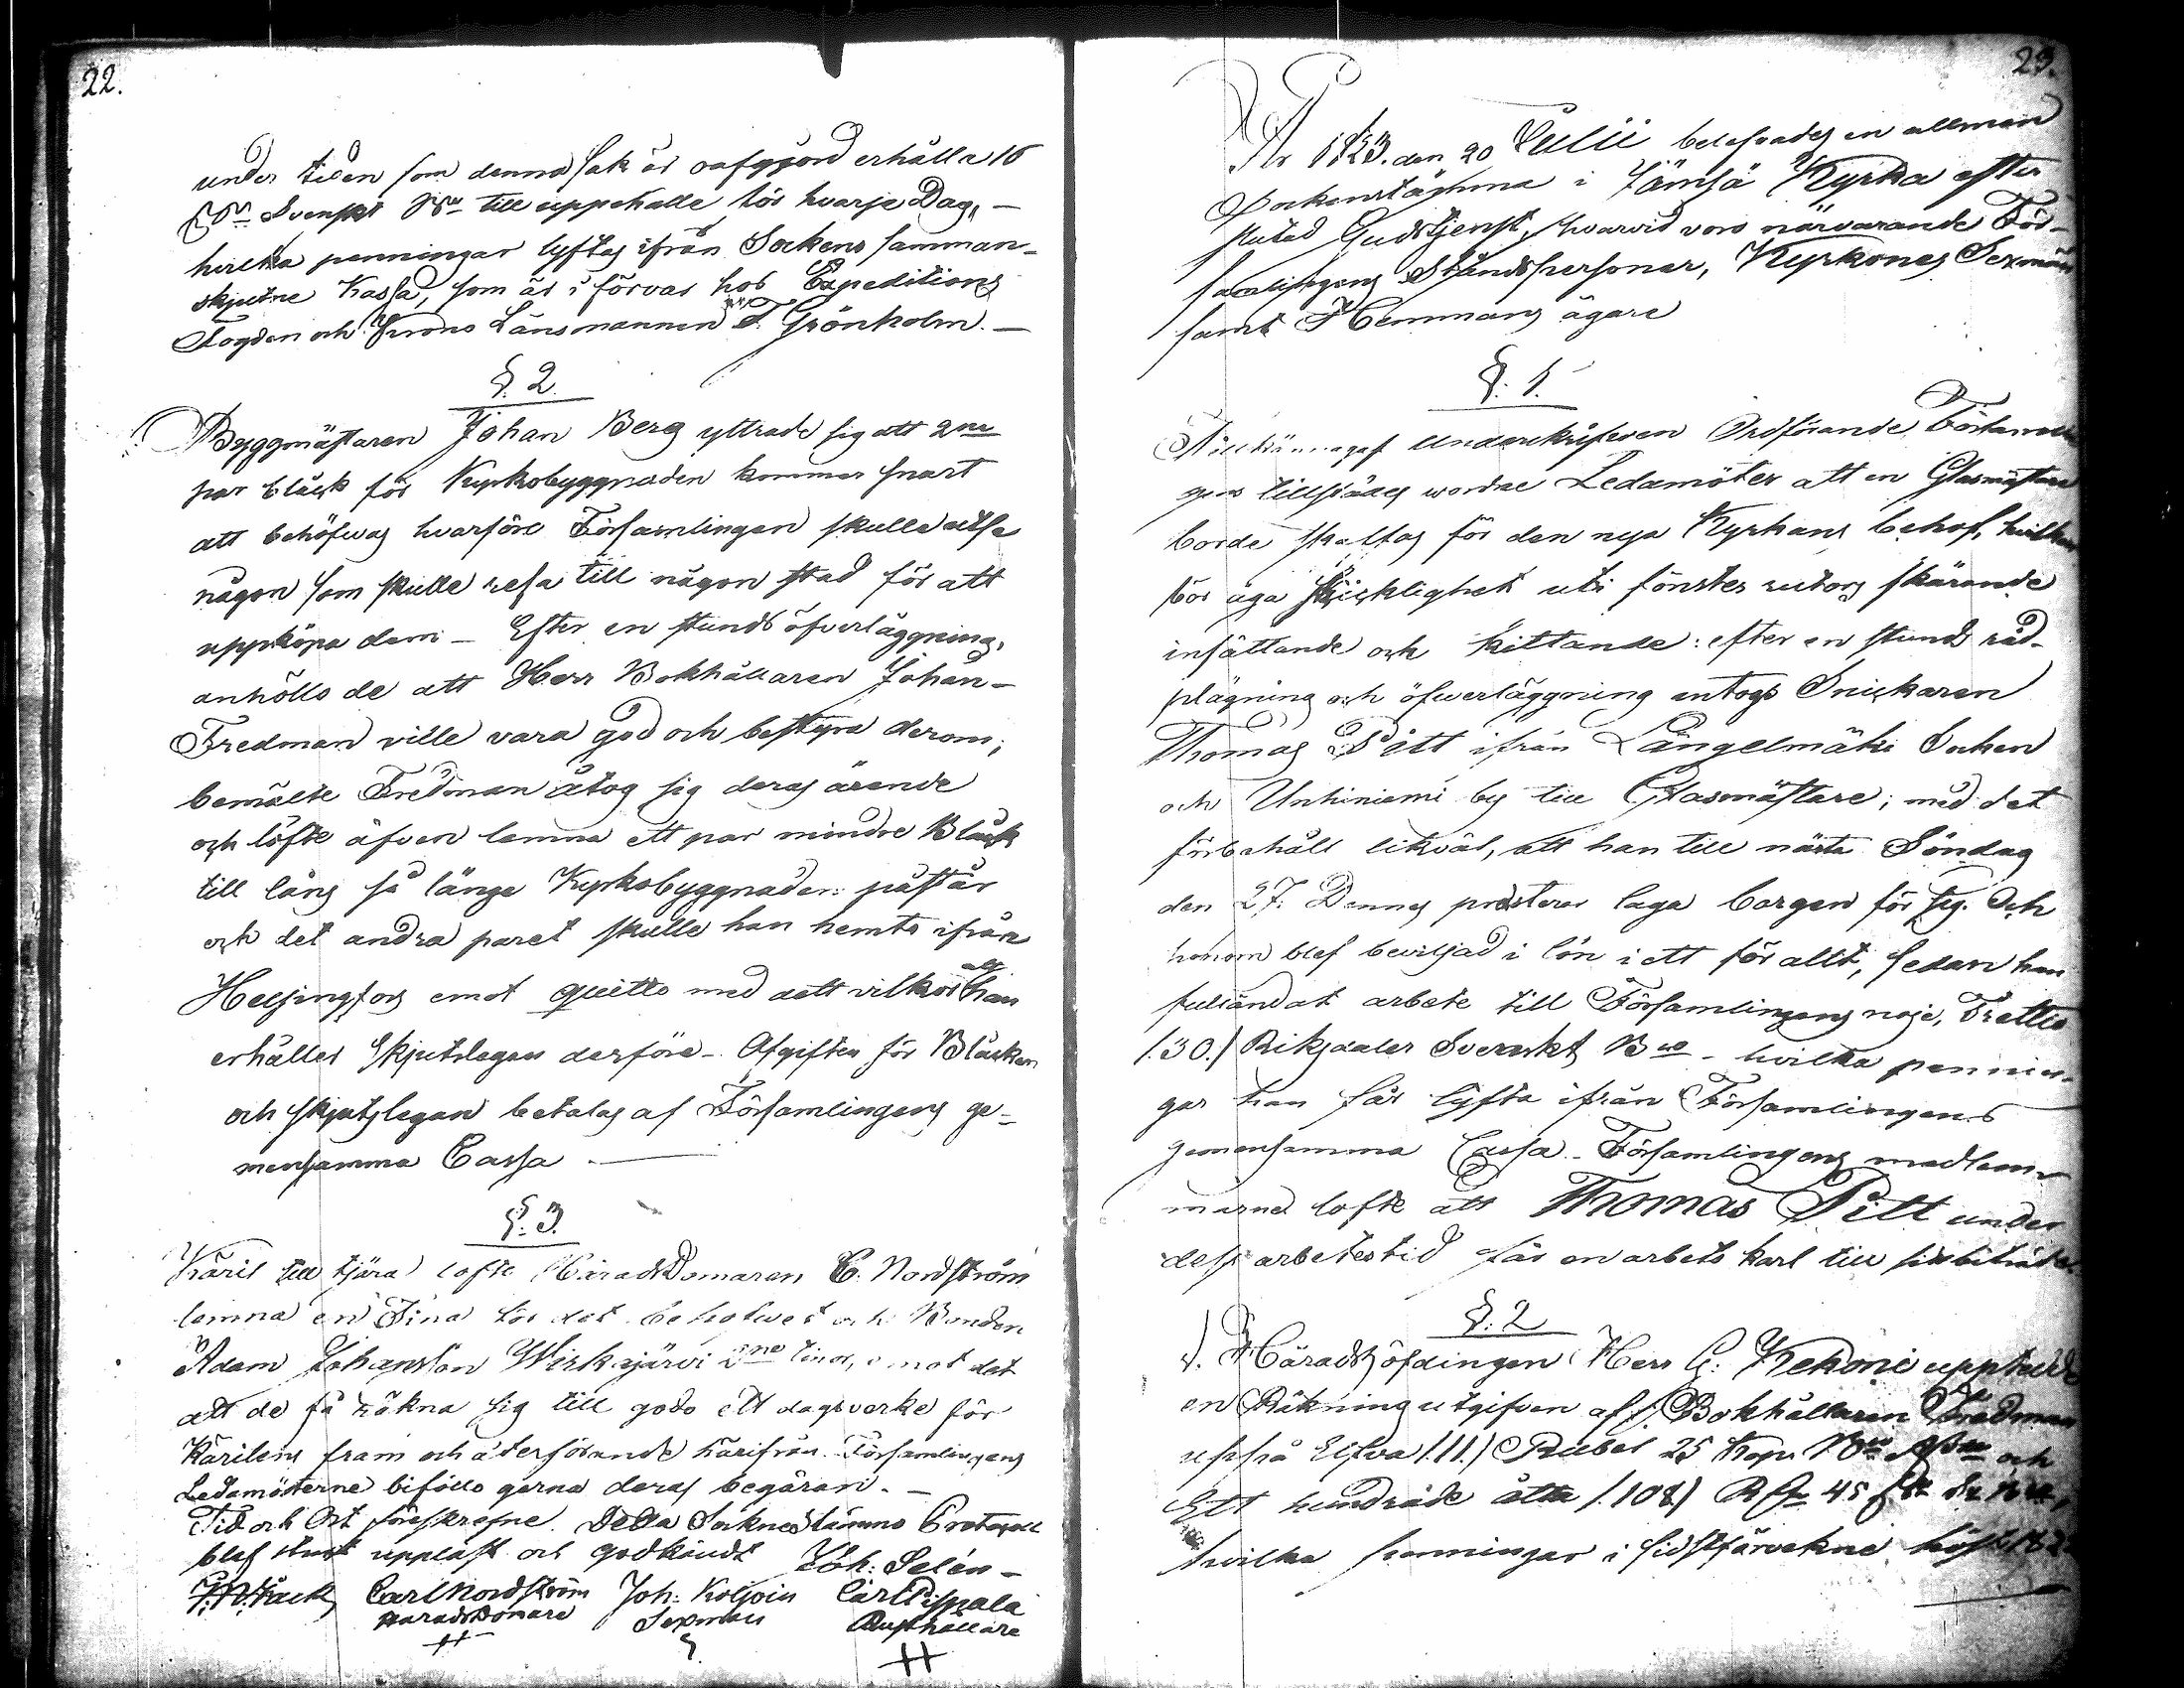 22.
under tiden som denna sak är oafgjord erhålla 16
Svenskt till uppehälle för hvarje Dag, —
hvilka penningar lyftas ifrån Sockens samman-
skjutne Kassa, som är i förvar hos Expeditions
Fogden och Krono Länsmannen F. Grönholm. —
§. 2.
Byggmästaren Johan Berg yttrade sig att 2ne
par Bläck för Kyrkobyggnaden kommer snart
att behöfwas hvarföre Församlingen skulle utse
någon som skulle resa till någon stad för att
uppköpa dem — Efter en stunds öfverläggning,
anhöllo de att Herr Bokhållaren Johan —
Fredman ville vara god och bestyra derom;
bemälte Fredman åtog sig deras ärende
och löfte äfven lemna ett par mindre Bläck
till låns så länge Kyrkobyggnaden påstår
och det andra paret skulle han hemta ifrån
Helsingfors emot quitto med dett vilkor att han
erhåller skjutslegan derföre — Afgiften för Bläcken
och skjutslegan betalas af Församlingens ge-
mensamma Cassa. —
§. 3.
Käril till tjära lofte HäradsDomaren C. Nordström
lemna en Tina för det behofwet och Bonden
Adam Johansson Wirkajärvi 2ne tinor, emot det
att de få räkna sig till godo ett dagsverke för
Kärilens fram och återförande härifrån. Församlingens
Ledamöterne biföllo gerna deras begäran. —
Tid och Ort föreskrefne. Detta Socknestämmo Protocoll
blef uppläst och godkändt Joh: Selén —
Carl Nordström Joh: Koljoin Carl Pispala
HäradsDomare Sexman Rusthållare
23.
År 1823. den 20 Julii belefvades en allmän
Sockenstämma i Jämsä Kyrka efter
slutad Gudstjenst, hvarvid voro närvarande För-
samlingens Ståndspersoner, Kyrkones Sexmän
samt Hemmans ägare
§. 1.
Tillkännagaf Underskrifven Ordförande Församlin
gens tillstädes wordne Ledamöter att en Glasmästare
borde skaffas för den nya Kyrkans behof, hvilken
bör äga skicklighet uti fönster rutors skärande
insättande och kittande: efter en stunds råd-
plägning och öfverläggning antogs Snickaren
Thomas Pitt ifrån Längelmäki Socken
och Unhiniemi by till Glasmästare; med det
förbehåll likväl, att han till nästa Söndag
den 27. Dennes præsterar laga borgen för sig. Och
honom blef beviljad i lön i ett för allt, sedan han
fulländat arbete till Församlingens nöje, Trettio
/:30./ Riksdaler Svenskt Bco — hvilka pennin-
gar han får lyfta ifrån Församlingens
gemensamma Cassa — Församlingens medlem-
marne lofte att Thomas Pitt under
dess arbetestid får en arbets karl till sin biträde.
§. 2
Häradshöfdingen Herr G: Kekoni uppteed
en Räkning utgifven af Bokhållaren Fredman
uppå Elfva /.11./ Rubel 25 Kop. och
Ett hundrade åtta /.108./ 45
hvilka penningar i sidstförvekne höst 182